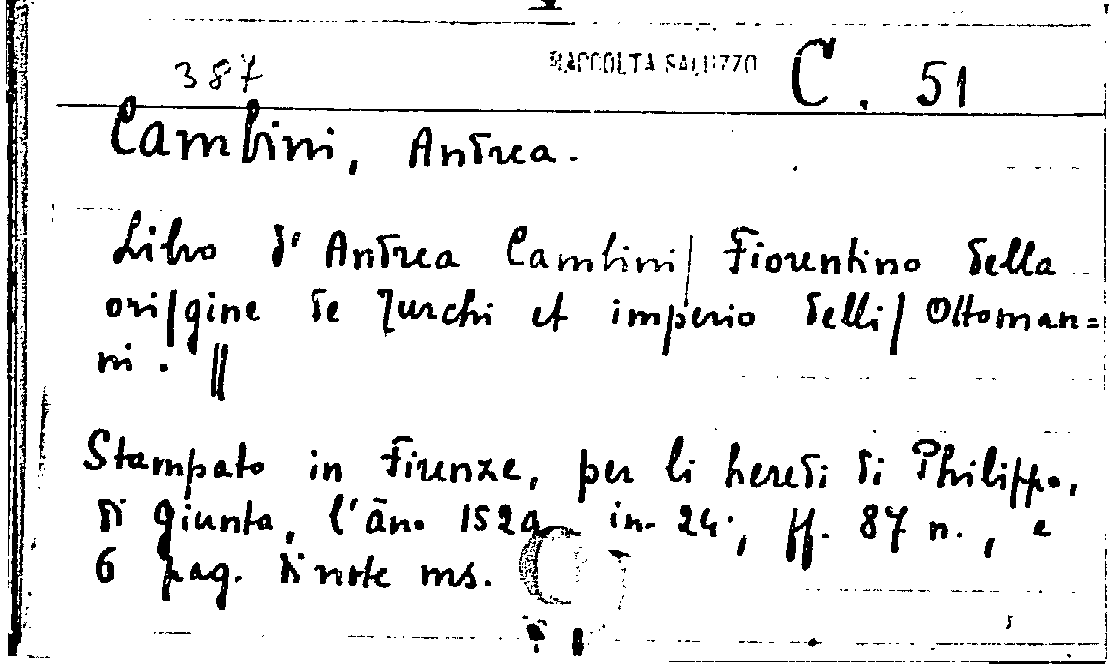 387 RACCOLTA SALUZZO C. 51
Cambini, Andrea.
Libro d' Andrea Cambini/ Fiorentino della
ori/gine de Turchi et imperio delli/ Ottoman=
ni. //
Stampato in Firenze, per li heredi di Philippo,
di giunta, l'āno 1529 in-24°, ff. 87 n., e
6 pag. di note ms.